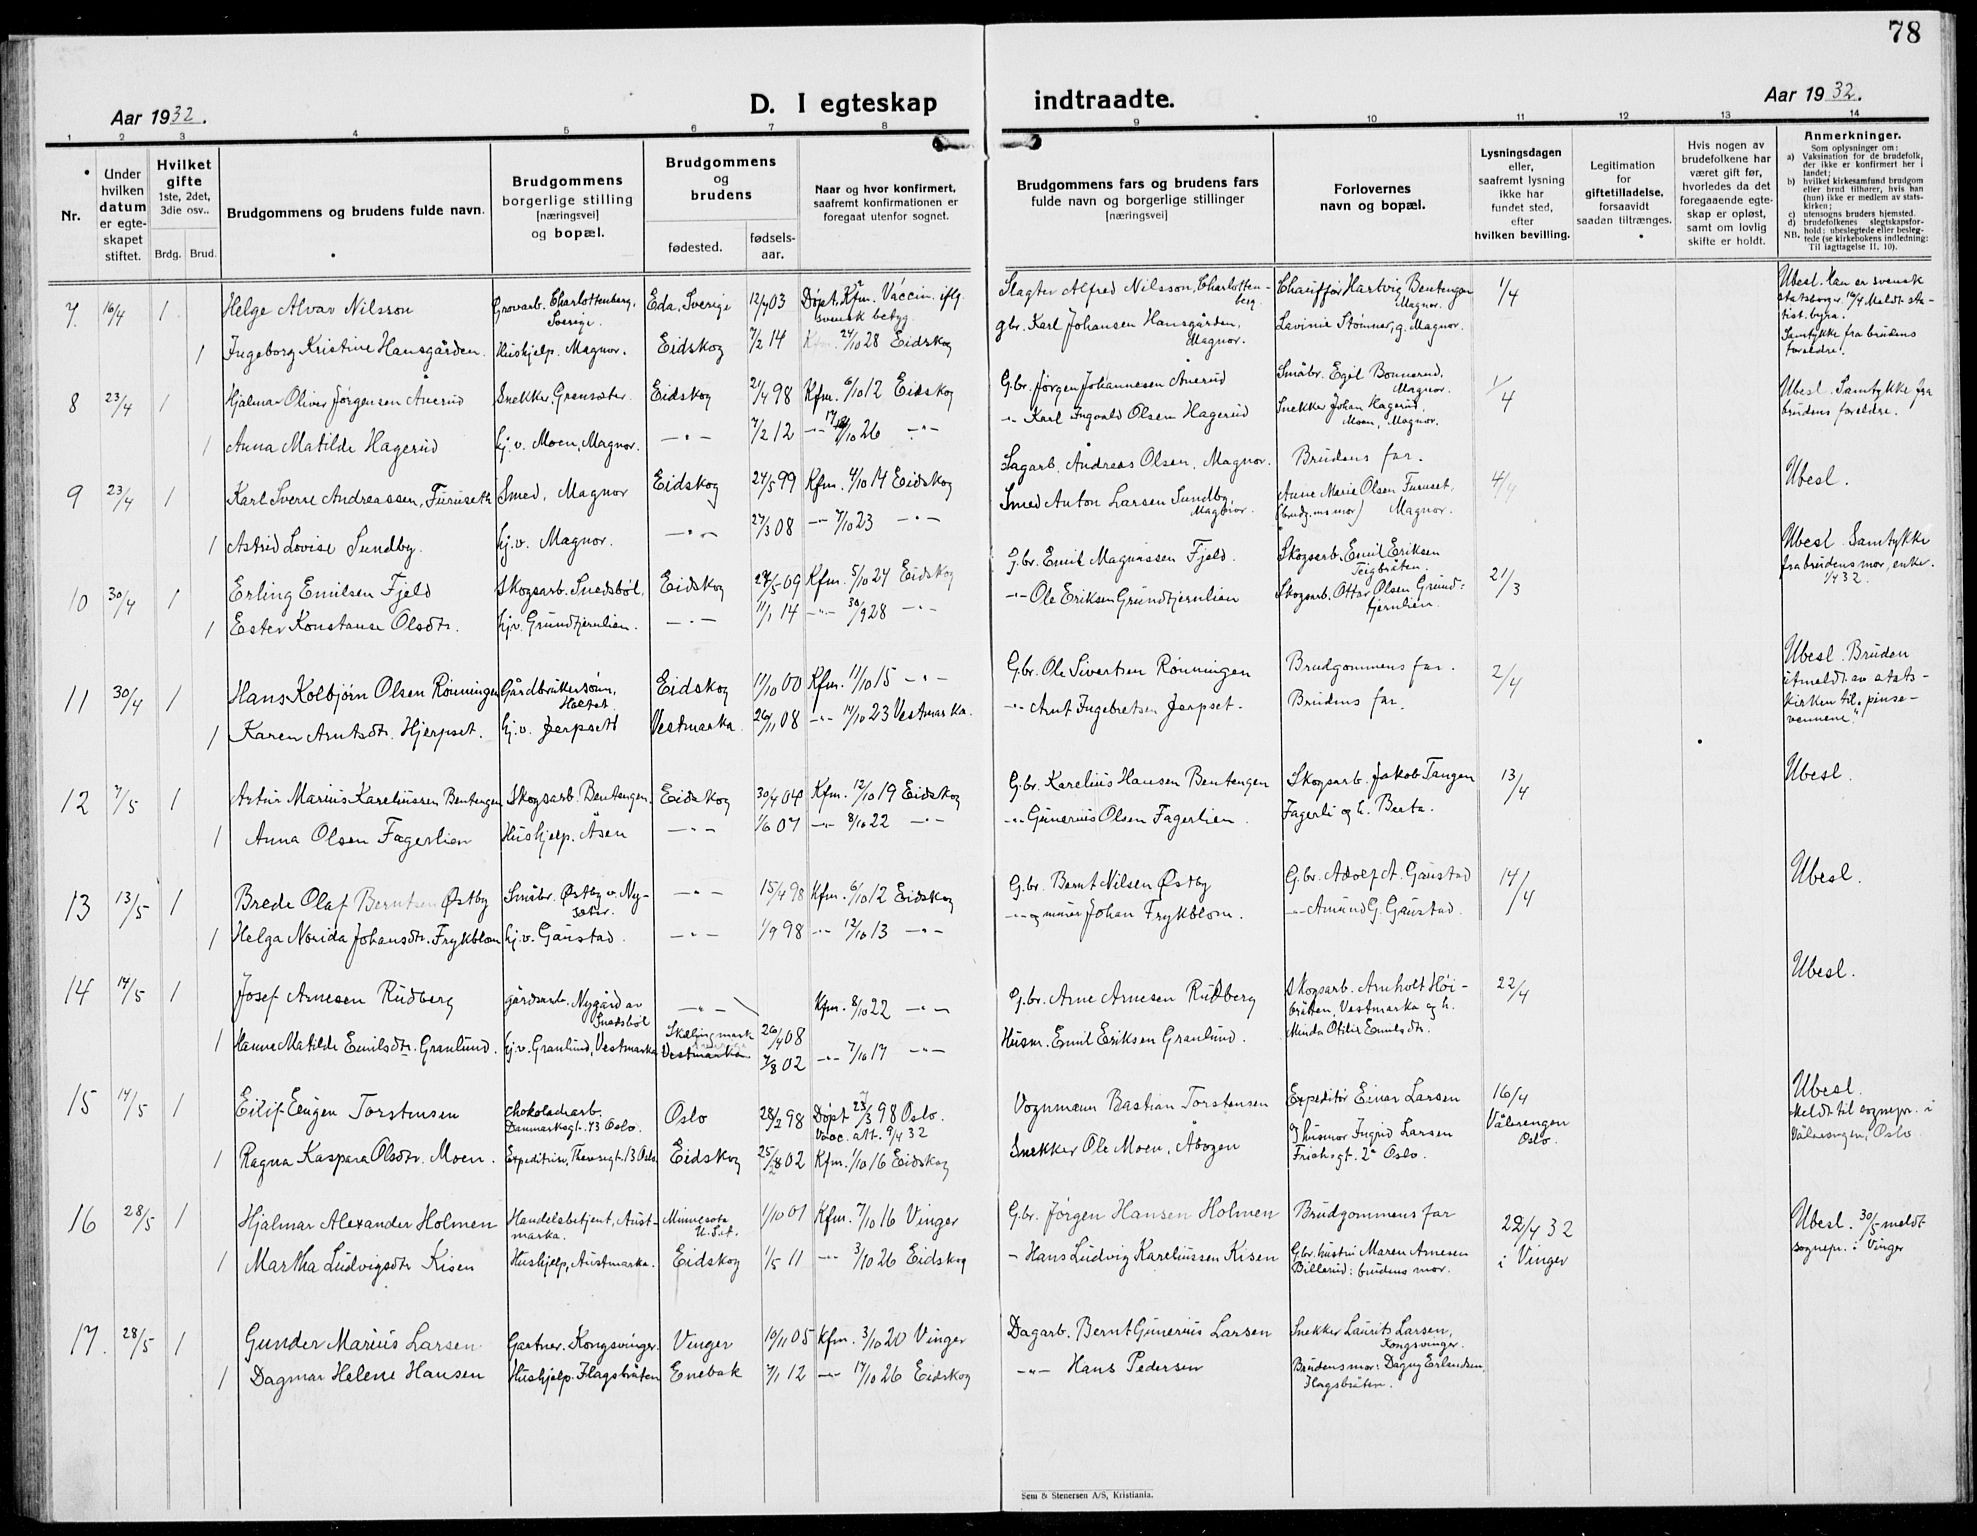 78
Aar 1932.
D. I egteskap
indtraadte.
Aar 1932.
1 2 3 4 5 6 7 8 9 10 11 12 13 14
Nr.
Under hvilken datum er egteskapet stiftet.
Hvilket gifte
1ste, 2det, 3die osv..
Brdg. Brud.
Brudgommens og brudens fulde navn.
Brudgommens borgerlige stilling [næringsvei] og bopæl.
Brudgommens og brudens
fødested.
fødselsaar.
Naar og hvor konfirmert, saafremt konfirmationen er foregaat utenfor sognet.
Brudgommens fars og brudens fars fulde navn og borgerlige stillinger [næringsvei]
Forlovernes navn og bopæl.
Lysningsdagen eller, saafremt lysning ikke har fundet sted, efter hvilken bevilling.
Legitimation for giftetilladelse, forsaavidt saadan tiltrænges.
Hvis nogen av brudefolkene har været gift før, hvorledes da det foregaaende egteskap er opløst, samt om lovlig skifte er holdt.
Anmerkninger.
Som oplysninger om:
a) Vaksination for de brudefolk, der ikke er konfirmert her i landet;
b) hvilket kirkesamfund brudgom eller brud tilhører, hvis han (hun) ikke er medlem av statskirken;
c) utensogns bruders hjemsted.
d) brudefolkenes slegtskapsforhold; ubeslegtede eller beslegtede (se kirkebokens indledning: Til iagttagelse II, 10).
NB.
7. 16/4 1 Helge Alvar Nilsson Grovarb. Charlottenberg, Sverige. Eda, Sverige 12/4 03 Døpt, Kfm. Vaccin. iflg. svensk betyg. Slagter Alfred Nilsson, Charlottenberg. Chauffør Hartvig Bentengen Magnor. 1/4 Ubesl. Han er svensk statsborger. 16/4 Meldt statist. byrå.
1 Ingeborg Kristine Hansgården. Hushjelp. Magnor. Eidskog 7/2 14 24/10 28 Eidskog gbr. Karl Johansen Hansgården, Magnor. Lavinie Stømner, g. Magnor. Samtykke fra brudens foreldre.
8 23/4 1 Hjalmar Oliver Jørgensen Ånerud Snekker Grensæter. Eidskog 21/4 98 Kfm. 6/10 12 Eidskog G.br. Jørgen Johannesen Ånerud Småbr. Egil Bonnerud, Magnor. 1/4 Ubesl. Samtykke fra brudens foreldre.
1 Anna Matilde Hagerud hj. v. Moen, Magnor. —"— 7/2 12 —"— 17/10 26 —"— —"— Karl Ingvald Olsen Hagerud Snekker Johan Hagerud, Moen, Magnor.
9 23/4 1 Karl Sverre Andreassen, Furuseth Smed, Magnor Eidskog 24/5 99 Kfm. 4/10 14 Eidskog Sagarb. Andreas Olsen, Magnor. Brudens far. 4/4 Ubesl.
1 Astrid Lovise Sundby. hj. v. Magnor. —"— 27/3 08 —"— 7/10 23 —"— Smed Anton Larsen Sundby, Magnor. Anne Marie Olsen Furuset, (brudg.ms mor) Magnor.
10 30/4 1 Erling Emilsen Fjeld Skogsarb. Snedsbøl, Eidskog 27/5 09 Kfm. 5/10 24 Eidskog G.br. Emil Magnussen Fjeld. Skogsarb. Emil Eriksen Teigbråten. 21/3 Ubesl. Samtykke fra brudens mor, enke. 1/4 32.
1 Ester Konstanse Olsdtr. hj.v. Grundtjernlien. —"— 11/1 14 —"— 30/9 28 —"— —"— Ole Eriksen Grundtjernlien Skogsarb. Ottar Olsen Grundtjernlien.
11 30/4 1 Hans Kolbjørn Olsen Rønningen Gårdbrukersønn, Holtet. Eidskog 11/10 00 Kfm. 11/10 15 —"— G.br. Ole Sivertsen Rønningen Brudgommens far. 2/4 Ubesl. Bruden utmeldt av statskirken til "pinsevennene".
1 Karen Arntsdtr. Hjerpset. hj. v. Jerpset Vestmarka 26/11 08 —"— 14/10 23 Vestmarka. —"— Arnt Ingebretsen Jerpset. Brudens far.
12 7/5 1 Artur Marius Kareliussen Bentengen Skogsarb. Bentengen. Eidskog 30/4 04 Kfm. 12/10 19 Eidskog G.br. Karelius Hansen Bentengen Skogsarb. Jakob Tangen 13/4 Ubesl.
1 Anna Olsen Fagerlien Hushjelp. Åsen —"— 1/6 07 —"— 8/10 22 —"— —"— Gunerius Olsen Fagerlien. Fagerli og h. Berta.
13 13/5 1 Brede Olaf Berntsen Østby Småbr. Østby v. Nysæter. —"— 15/4 98 Kfm. 6/10 12 Eidskog G.br. Bernt Nilsen Østby G.br. Adolf A. Gaustad 14/4 Ubesl.
1 Helga Norida Johansdtr. Frykblom hj. v. Gaustad. —"— 1/9 98 —"— 12/10 13 —"— —"— og murer Johan Frykblom. —"— Amund G. Gaustad.
14 14/5 1 Josef Arnesen Rudberg gårdsarb. Nygård av Snedsbøl —"— Kfm. 8/10 22 —"— G.br. Arne Arnesen Rudberg Skogsarb. Arnholt Høibråten, Vestmarka og h. 22/4 Ubesl.
1 Hanne Matilde Emilsdtr. Granlund. hj. v. Granlund, Vestmarka Vestmarka 26/4 08 7/8 02 —"— 7/10 17 —"— Husm. Emil Eriksen Granlund. Minda Otilie Emilsdtr.
15 14/5 1 Eilif Eugen Torstensen Chokoladearb. Danmarksgt. 43 Oslo. Oslo 28/2 98 Døpt 27/3 98 Oslo. Vacc. att. 9/4 32 Vognmann Bastian Torstensen Expeditør Einar Larsen 16/4 Vålerengen Oslo. Ubesl. Meldt til sognepr. i Vålerengen, Oslo.
1 Ragna Kaspara Olsdtr. Moen. Expeditrise, Thevsegt. 13 Oslo Eidskog 25/8 02 Kfm. 1/10 16 Eidskog Snekker Ole Moen, Åbogen og husmor Ingrid Larsen Friehsgt. 2a Oslo.
16 28/5 1 Hjalmar Alexander Holmen Handelsbetjent, Austmarka. Minnesota U.S.A. 1/10 01 Kfm. 7/10 16 Vinger G.br. Jørgen Hansen Holmen Brudgommens far 22/4 32 i Vinger Ubesl. 30/5 meldt sognepr. i Vinger
1 Martha Ludvigsdtr Kisen Hushjelp, Austmarka. Eidskog 1/5 11 —"— 3/10 26 Eidskog — Hans Ludvig Kareliussen Kisen G.br. hustru Maren Arnesen Billerud: brudens mor.
17. 28/5 1 Gunder Marius Larsen Gartner. Kongsvinger. Vinger 10/11 05 Kfm. 3/10 20 Vinger Dagarb. Bernt Gunerius Larsen Snekker Laurits Larsen, Kongsvinger.
1 Dagmar Helene Hansen Hushjelp. Flagsbråten Enebak 7/1 12 —"— 17/10 26 Eidskog —"— Hans Pedersen Brudens mor: Dagny Erlandsen. Flagsbråten.
Sem & Stenersen A/S, Kristiania.